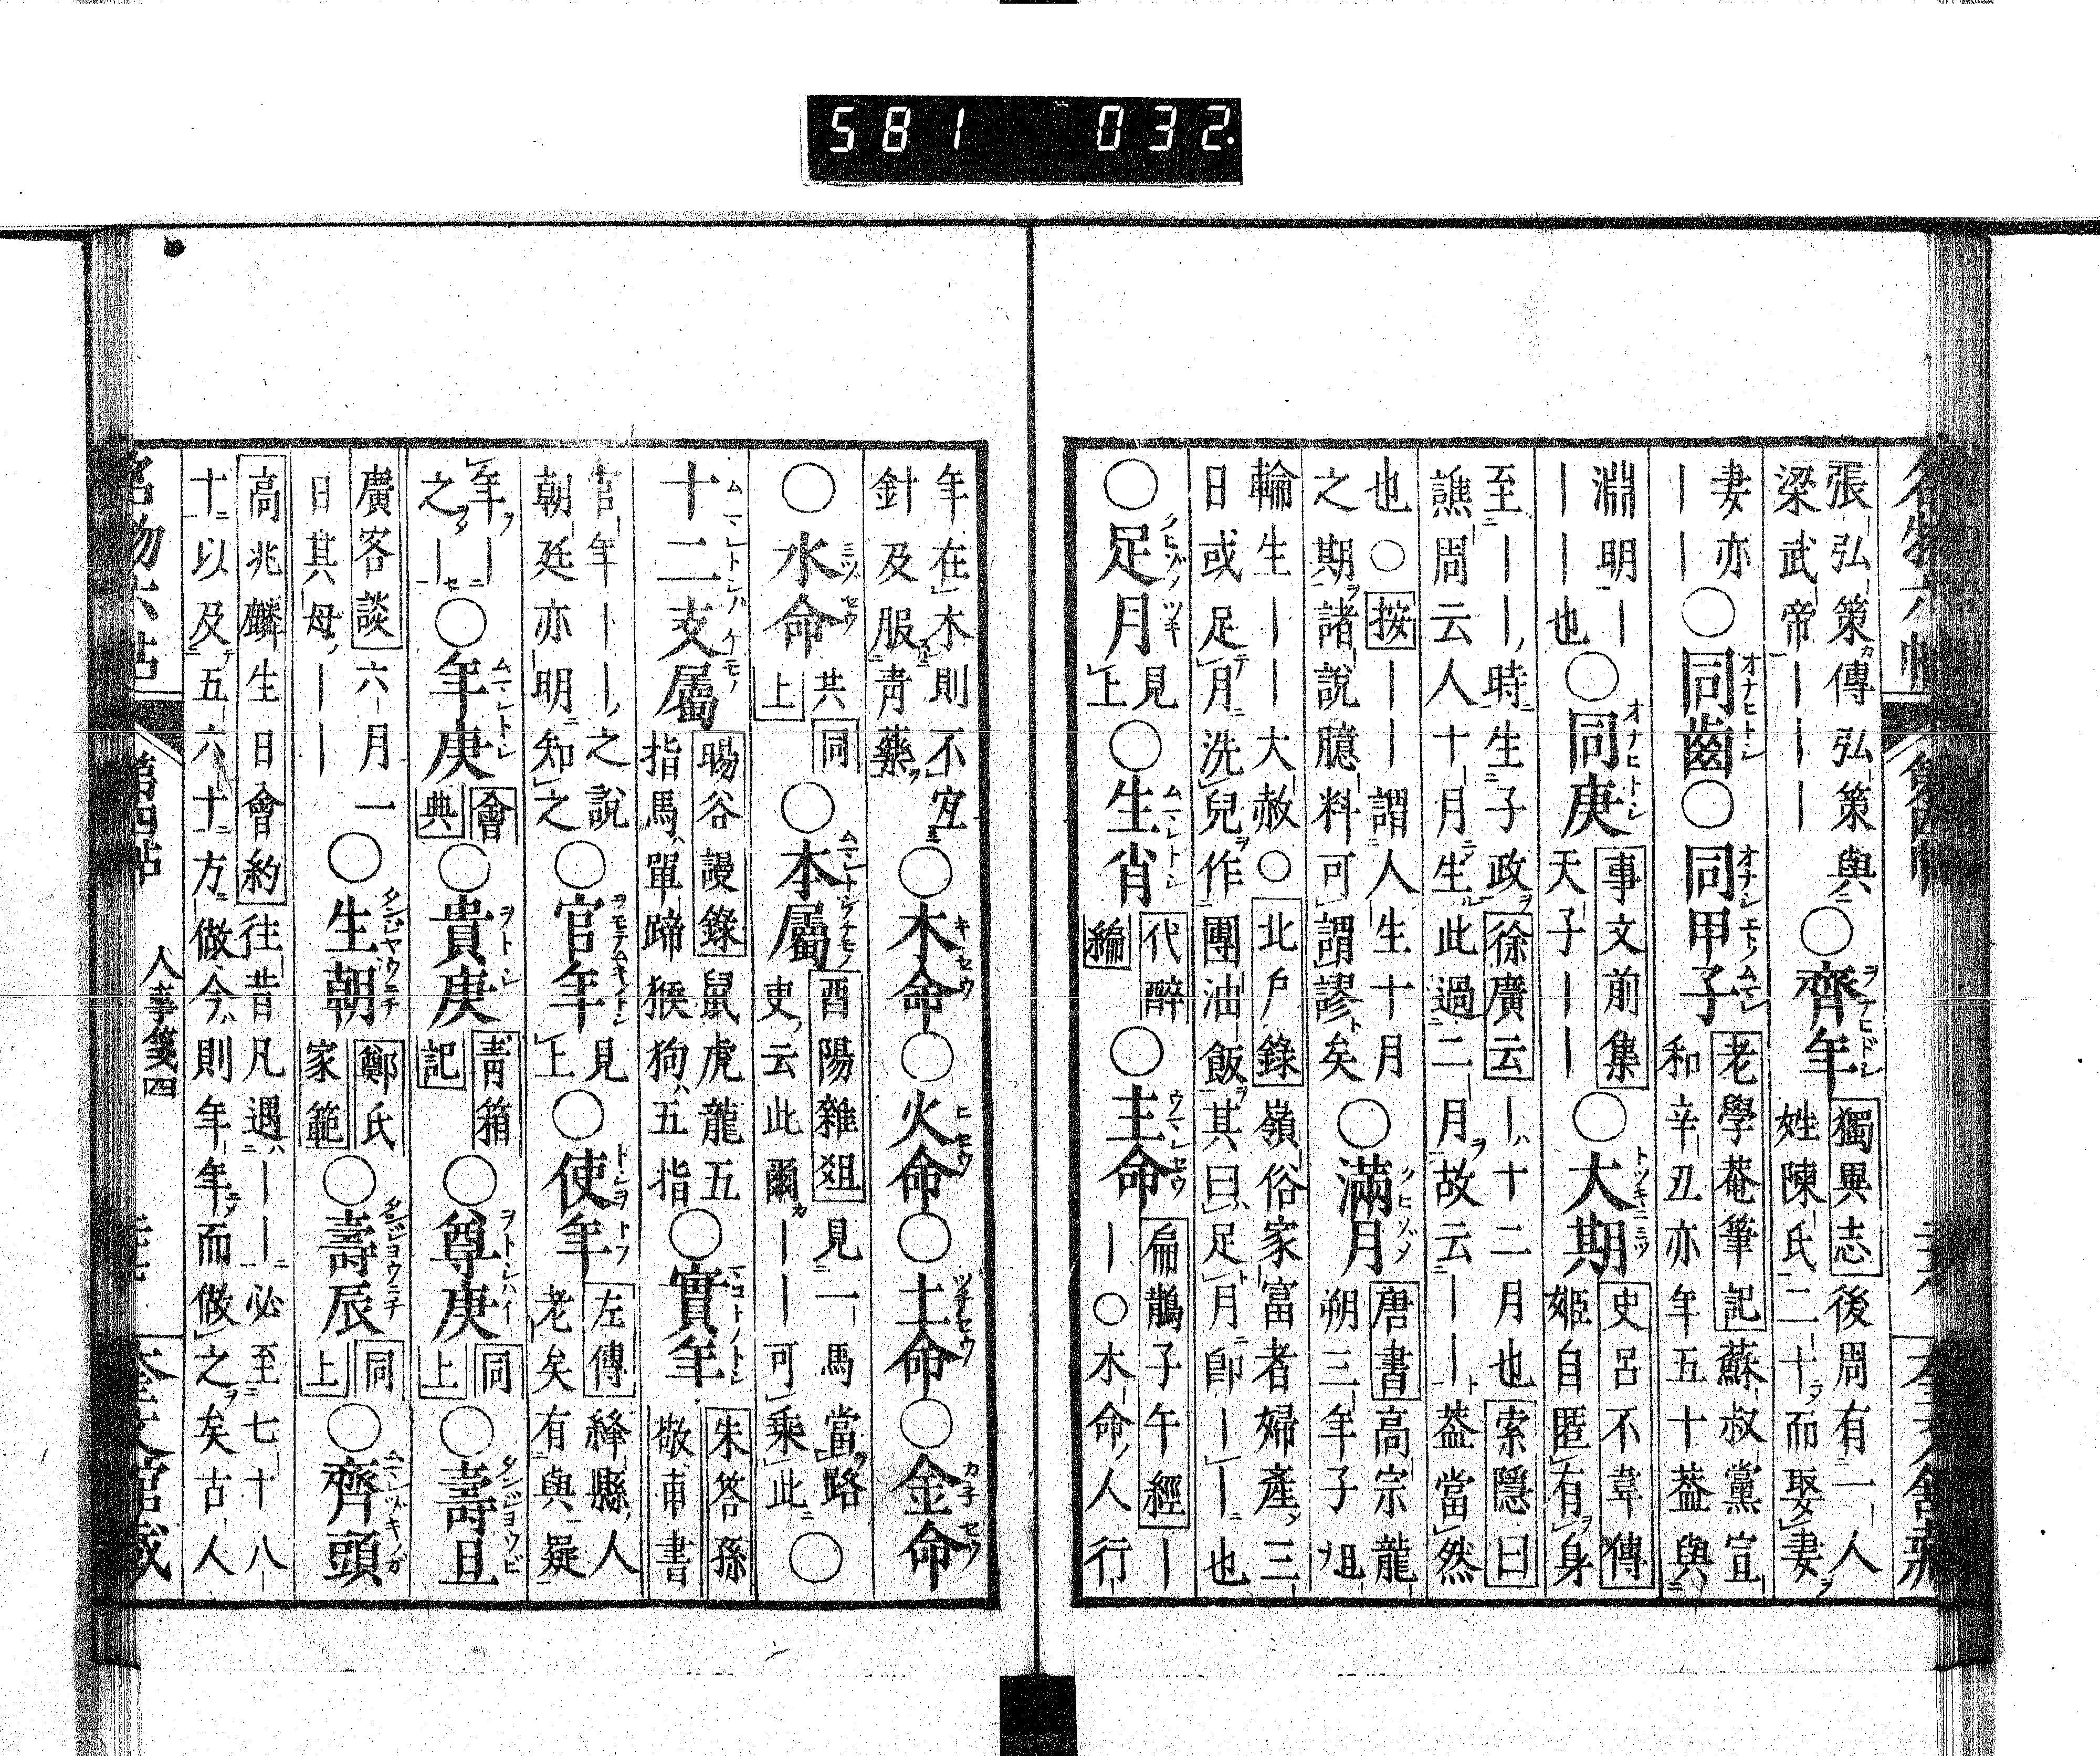 581 032.
張弘策傳弘策與
梁武帝｜｜｜
○齊年
獨異志後周有一人
姓陳氏二十而娶妻
妻亦
｜｜
○同齒○同甲子
老學菴筆記蘇叔黨宣
和辛丑亦年五十葢與
淵明｜
｜｜｜也
○同庚
事文前集
天子｜｜
○大期
史呂不韋傳
姬自匿有身
至｜｜時生子政徐廣云｜十二月也索隱曰
譙周云人十月生此過二月故云｜｜葢當然
也○按｜｜謂人生十月
之期諸說臆料可謂謬矣
○滿月
唐書高宗龍
朔三年子旭
輪生｜｜大赦○北戶錄嶺俗家富者婦產三
日或足月洗兒作團油飯其曰足月卽｜｜也
○足月
見
上
○生肖
代醉
編
○主命
扁鵲子午經｜
｜○木命人行
年在木則不宜
針及服靑藥
○木命○火命○土命○金命
○水命
共同
上
○本屬
酉陽雜俎見一馬當路
吏云此爾｜｜可乘此
○
十二支屬
暘谷謾錄鼠虎龍五
指馬單蹄猴狗五指
○實年
朱答孫
敬甫書
官年｜｜之說
朝廷亦明知之
○官年
見
上
○使年
左傳絳縣人
老矣有與疑
年｜
之｜
○年庚
會
典
○貴庚
靑箱
記
○尊庚
同
上
○壽旦
廣客談六月一
日其母｜｜
○生朝
鄭氏
家範
○壽辰
同
上
○齊頭
高兆麟生日會約往昔凡遇｜｜必至七十八
十以及五六十方做今則年年而做之矣古人
人事箋四